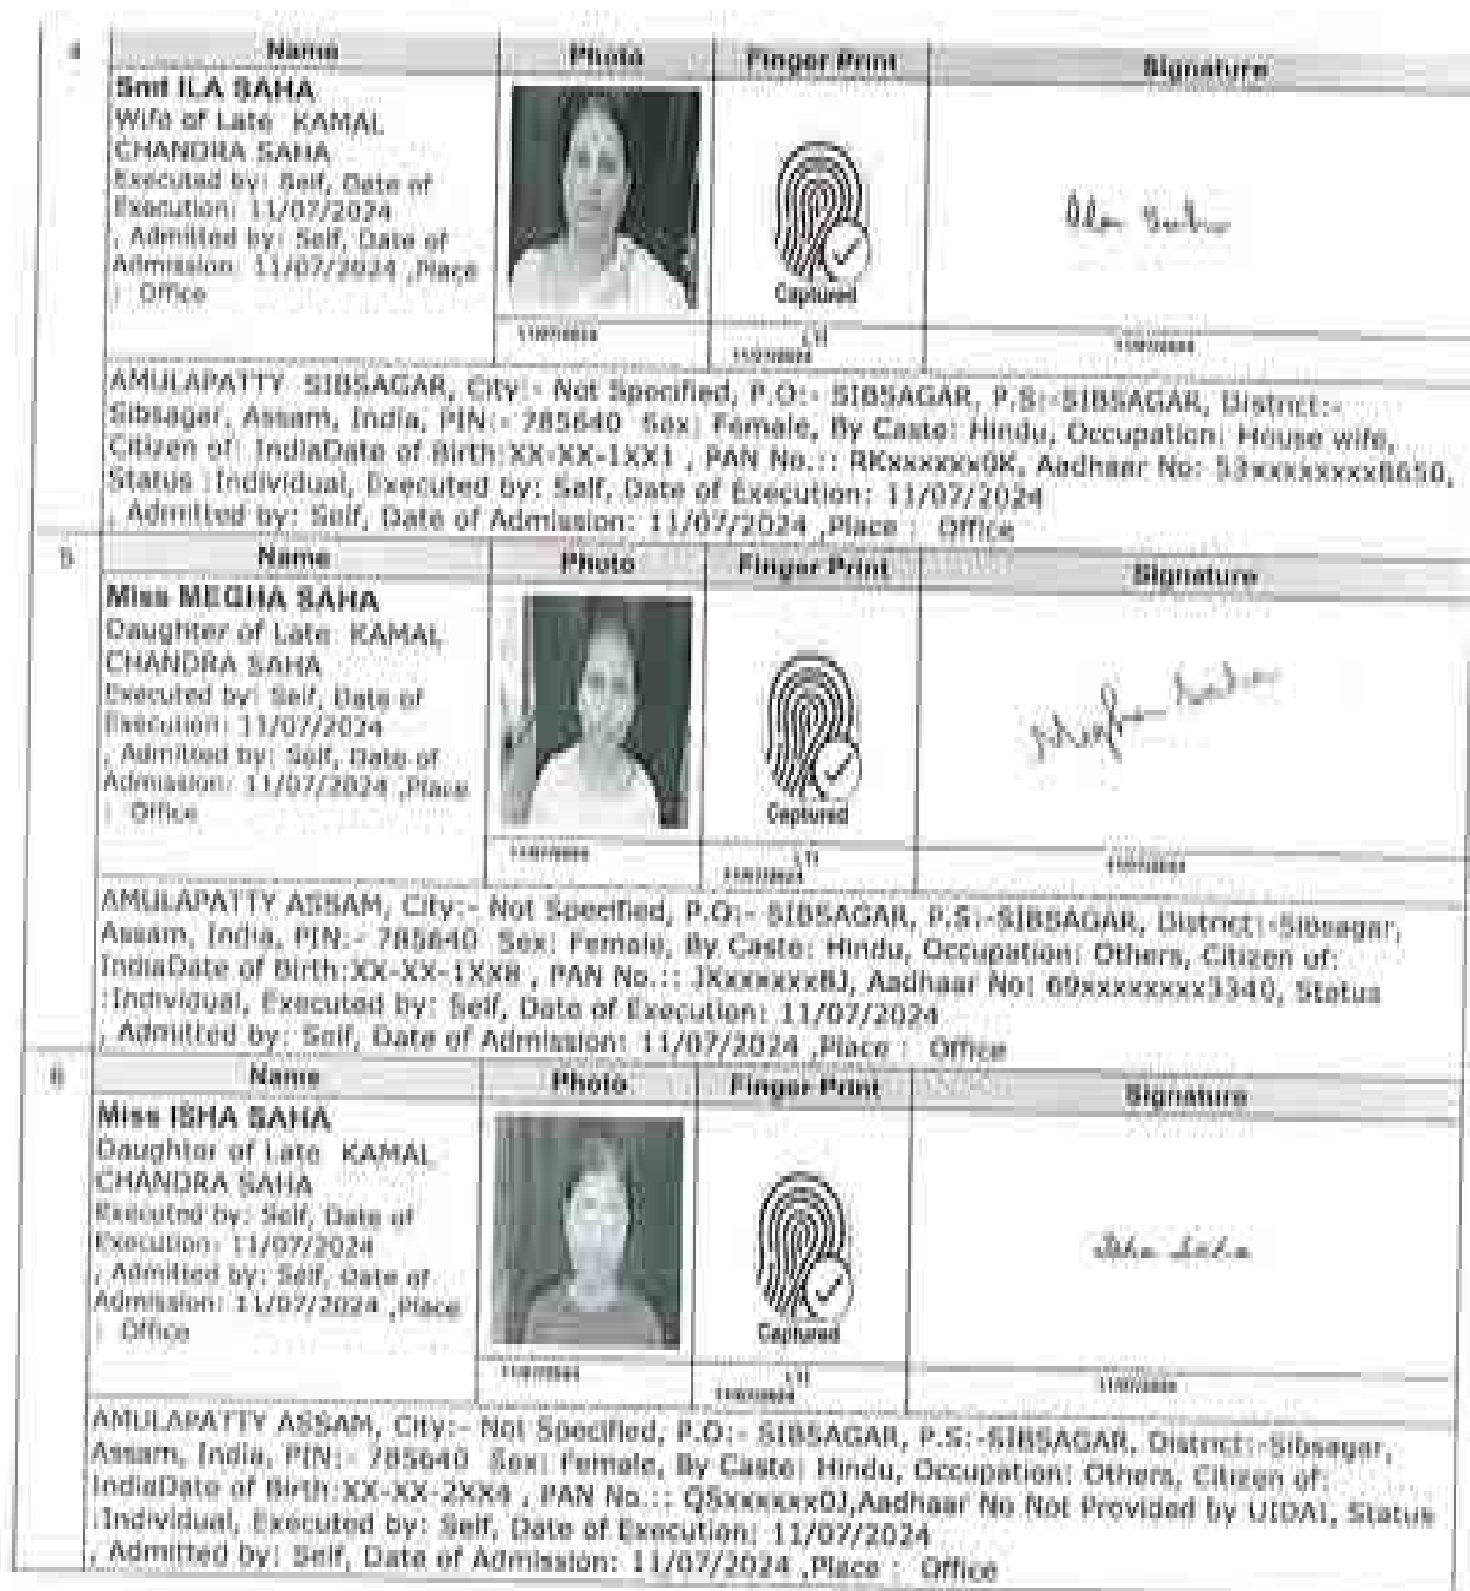 4
Name Photo Finger Print Signature
Smt ILA SAHA
Wife of Late KAMAL
CHANDRA SAHA
Executed by: Self, Date of
Execution: 11/07/2024
, Admitted by: Self, Date of
Admission: 11/07/2024 ,Place
: Office
Captured
Ila Saha
11/07/2024 LTI 11/07/2024 11/07/2024
AMULAPATTY SIBSAGAR, City:- Not Specified, P.O:- SIBSAGAR, P.S:-SIBSAGAR, District:-
Sibsagar, Assam, India, PIN:- 785640 Sex: Female, By Caste: Hindu, Occupation: House wife,
Citizen of: IndiaDate of Birth:XX-XX-1XX1 , PAN No.:: RKxxxxxx0K, Aadhaar No: 53xxxxxxxx8650,
Status :Individual, Executed by: Self, Date of Execution: 11/07/2024
, Admitted by: Self, Date of Admission: 11/07/2024 ,Place : Office
5
Name Photo Finger Print Signature
Miss MEGHA SAHA
Daughter of Late KAMAL
CHANDRA SAHA
Executed by: Self, Date of
Execution: 11/07/2024
, Admitted by: Self, Date of
Admission: 11/07/2024 ,Place
: Office
Captured
Megha Saha
11/07/2024 LTI 11/07/2024 11/07/2024
AMULAPATTY ASSAM, City:- Not Specified, P.O:- SIBSAGAR, P.S:-SIBSAGAR, District:-Sibsagar,
Assam, India, PIN:- 785640 Sex: Female, By Caste: Hindu, Occupation: Others, Citizen of:
IndiaDate of Birth:XX-XX-1XX8 , PAN No.:: JXxxxxxx8J, Aadhaar No: 69xxxxxxxx3340, Status
:Individual, Executed by: Self, Date of Execution: 11/07/2024
, Admitted by: Self, Date of Admission: 11/07/2024 ,Place : Office
6
Name Photo Finger Print Signature
Miss ISHA SAHA
Daughter of Late KAMAL
CHANDRA SAHA
Executed by: Self, Date of
Execution: 11/07/2024
, Admitted by: Self, Date of
Admission: 11/07/2024 ,Place
: Office
Captured
Isha Saha
11/07/2024 LTI 11/07/2024 11/07/2024
AMULAPATTY ASSAM, City:- Not Specified, P.O:- SIBSAGAR, P.S:-SIBSAGAR, District:-Sibsagar,
Assam, India, PIN:- 785640 Sex: Female, By Caste: Hindu, Occupation: Others, Citizen of:
IndiaDate of Birth:XX-XX-2XX4 , PAN No.:: QSxxxxxx0J,Aadhaar No Not Provided by UIDAI, Status
:Individual, Executed by: Self, Date of Execution: 11/07/2024
, Admitted by: Self, Date of Admission: 11/07/2024 ,Place : Office